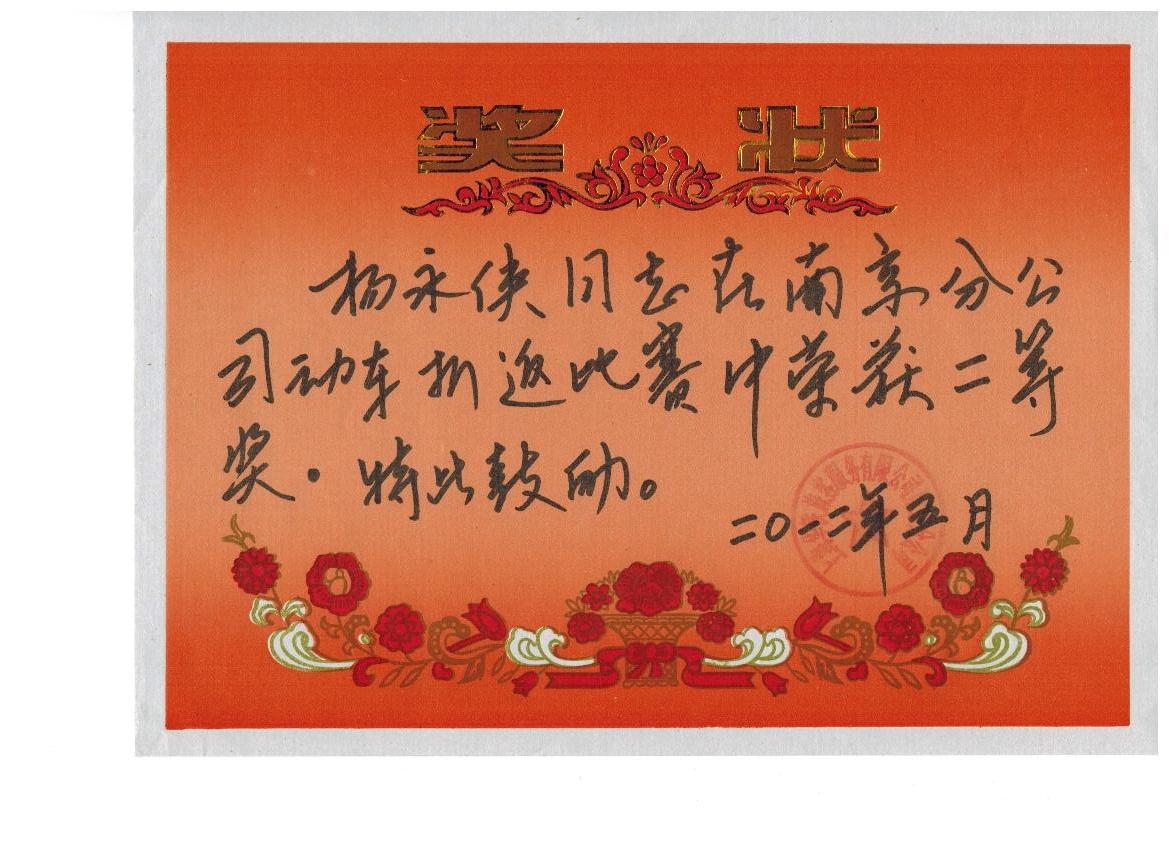 奖 状
杨永侠同志在南京分公
司动车折返比赛中荣获二等
奖。特此鼓励。
二〇一二年五月